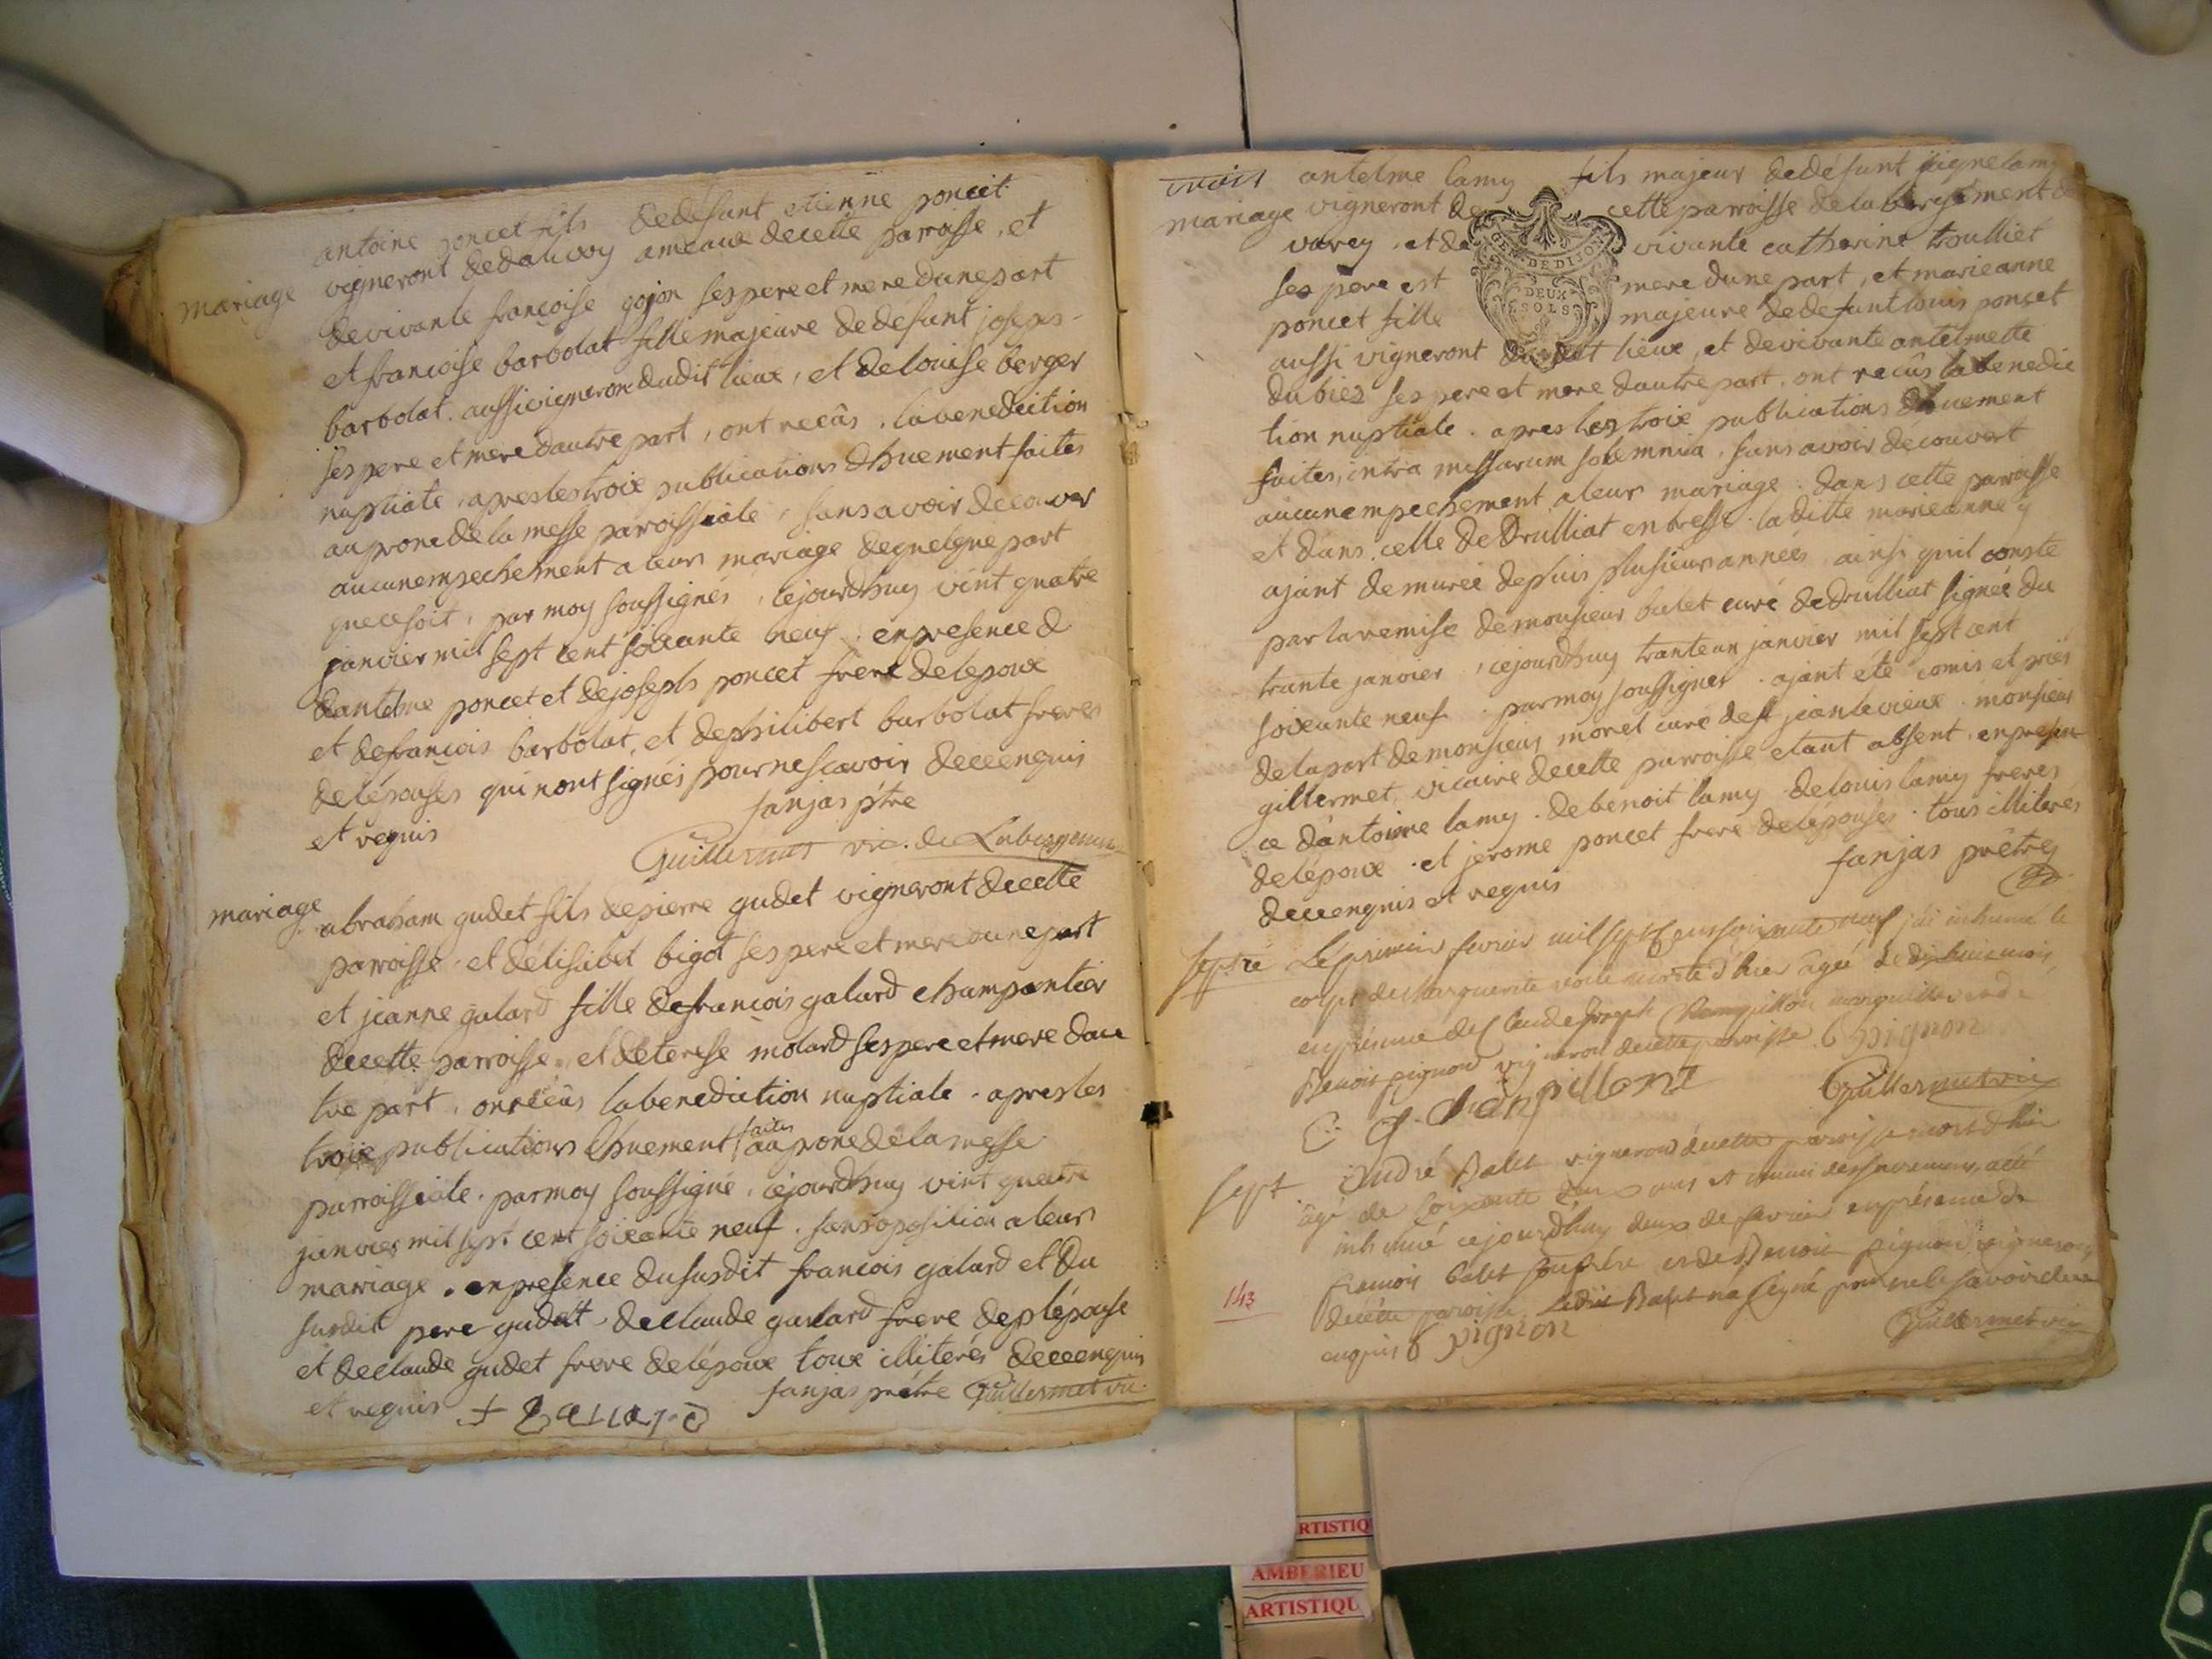 antoine poncet fils de defunt etienne poncet
mariage vigneront de dalivoy ameaux de cette parroisse, et
de vivante francoise gojon ses pere et mere dune part
et francoise barbolat fille majeure de defunt joseps
barbolat. aussi vigneron dudit lieux, et de louise berger
ses pere et mere dautre part, ont recûs, la benediction
nuptiale, apres les troix publications dhuement faites
au prone de la messe parroissiale, sans avoir decouver
aucun empechement a leurs mariage de quelque part
que ce soit, par moy soussignés, cejourdhuy vint quatre
janvier mil sept cent soixante neuf, en presence d
dantelme poncet et de joseph poncet frere de lepoux
et de francois barbolat, et de philibert barbolat freres
de lépouses qui n ont signés pour ne scavoir de ce enquis
et requis fanjas p'tre
Guillermet vic. de
mariage abraham gudet fils de pierre gudet vigneront de cette
parroisse, et délisabet bigot ses pere et mere dune part
et jeanne galard fille de francois galard charpantier
de cette parroisse, et de terese molard ses pere et mere dau
tre part, on recûs la benediction nuptiale. apres les
troix publications dhuement faites au prone de la messe
parroissiale. par moy soussigné, cejourdhuy vint quatre
janvier mil sept cent soixante neuf. sans oposition a leurs
mariage. en presence du susdit francois galard et du
susdit pere gudet, de claude galard frere de lépouse
et de claude gudet frere de lépoux toux illiterés de ce enquis
et requis fanjas prêtre Guillermet vic.
antelme lamy fils majeur de defunt lamy
mariage vigneront de cette parroisse de la bergement d
varey, et de vivante catherine troulliet
ses pere est mere dune part, et marieanne
poncet fille majeure de defunt louis poncet
aussi vigneront dudit lieux, et de vivante antelmette
dubiez ses pere et mere dautre part, ont recûs la benedic
tion nuptiale. apres les troix publications dhuement
faites, intra missarum solemnia, sans avoir découvert
aucun empechement a leur mariage. dans cette parroisse
et dans celle de Drulliat en bresse. laditte marieanne y
ajant demureé depuis plusieur années, ainsi quil conste
par la remise de monsieur bulet curé de drulliat signée du
trante janvier, cejourdhuy trante un janvier mil sept cent
soixante neuf. par moy soussignes. ajant été comis et priés
de la part de monsieur moret curé de st jean le vieux. monsieur
gillermet, vicaire de cette parroisse etant absent, en presen
ce dantoine lamy. de benoit lamy. de louis lamy freres
de lépoux. et jerome poncet frere de lépouses. tous illiterés
de ce enquis et requis fanjas prêtre
septre Le premier fevrier mil sept cens soixante neuf j'ai inhumé le
corps de Marguerite morte d'hier âgée de dixhuit mois
en présence de Claude Joseph marguillier
Benoit pignon vigneron de cette paroisse B pignon
Guillermet vic
sept André Balet vigneron de cette paroisse mort d'hier
âgé de soixante deux ans et muni des sacremens, a été
inhumé cejourdhuy deux de fevrier en présence de
francois balet son frère et de Benoit pignon vigneron
de cette paroisse. Ledit Balet n'a signé pour ne le savoir de ce
enquis B pignon Guillermet vic
143
GEN. DE DIJON
DEUX
SOLS
RTISTIQ
AMBERIEU
ARTISTIQU